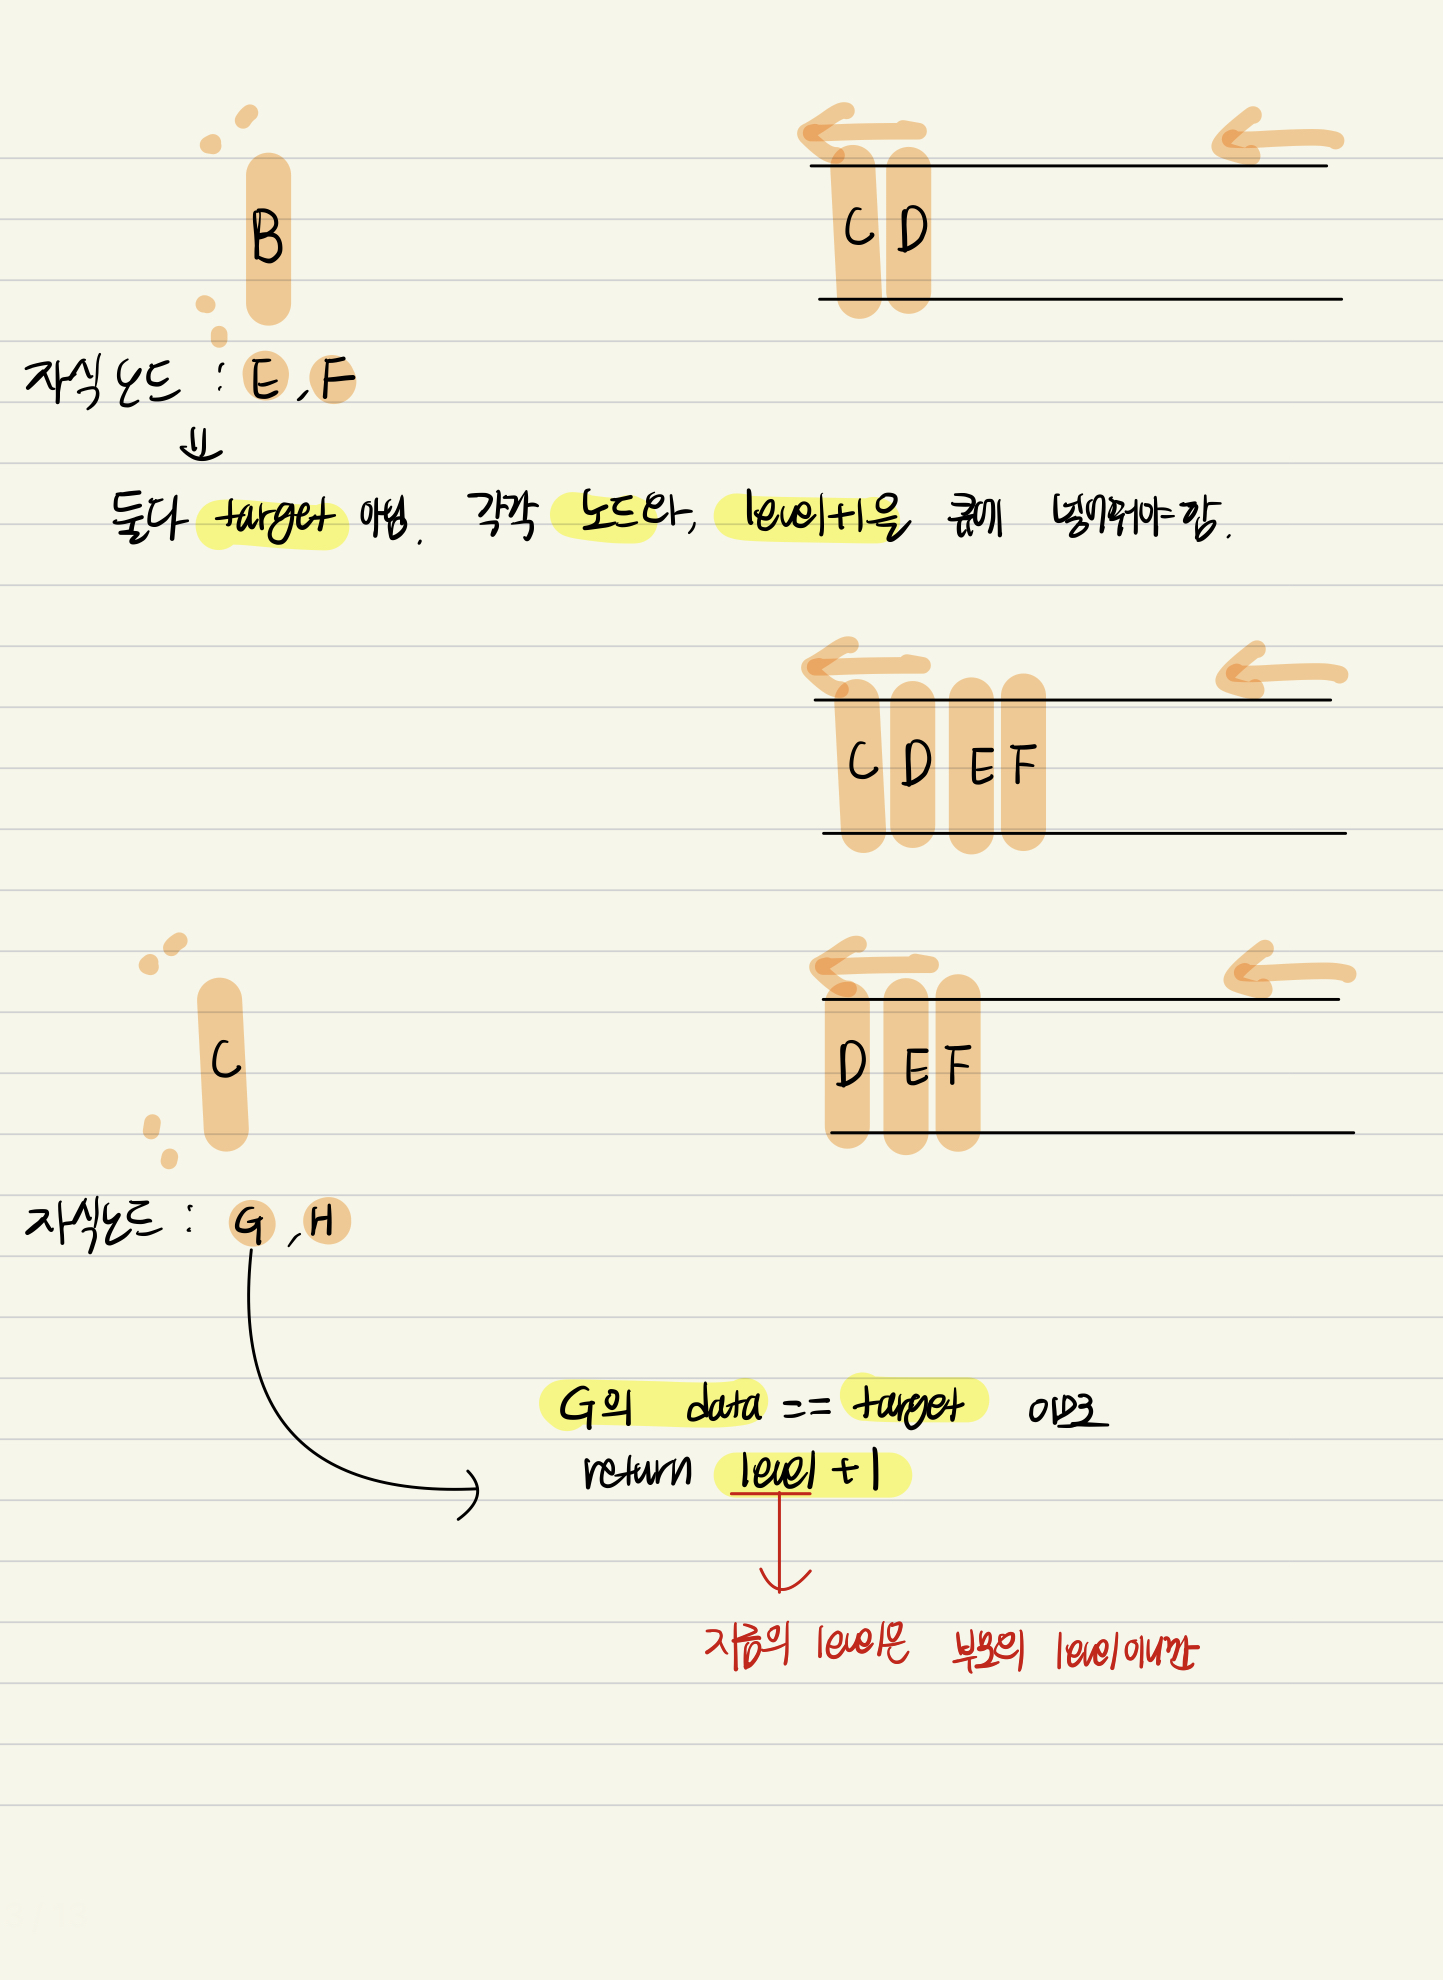 B
C D
자식 노드 : E, F
둘다 target 아님. 각각 노드와, level+1을 큐에 넣어줘야 함.
C D E F
C
D E F
자식노드 : G, H
G의 data == target 이므로
return level + 1
지금의 level은 부모의 level이니깐